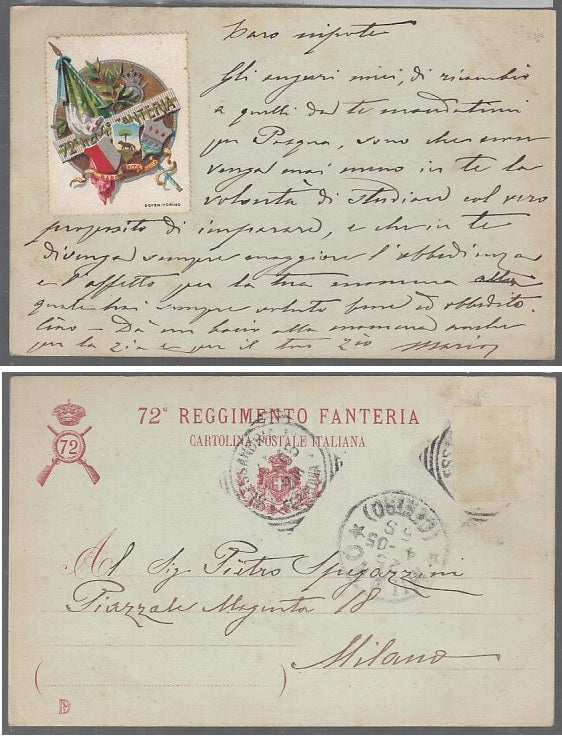 Caro nipote
Gli auguri miei, di ricambio
a quelli da te mandatimi
per Pasqua, sono che non
venga mai meno in te la
volontà di studiare col vero
proposito di imparare, e che in te
divenga sempre maggiore l'obbedienza
e l'affetto per la tua mamma alla
quale hai sempre voluto bene ed obbedito.
Ciao - Dà un bacio alla mamma anche
per la zia e per il tuo Zio Mario
DOYEN-TORINO
72° REGGIMENTO FANTERIA
CARTOLINA POSTALE ITALIANA
72
ALESSANDRIA
MILANO
(CENTRO)
Al Sig Pietro Spegazzini
Piazzale Magenta 18
Milano